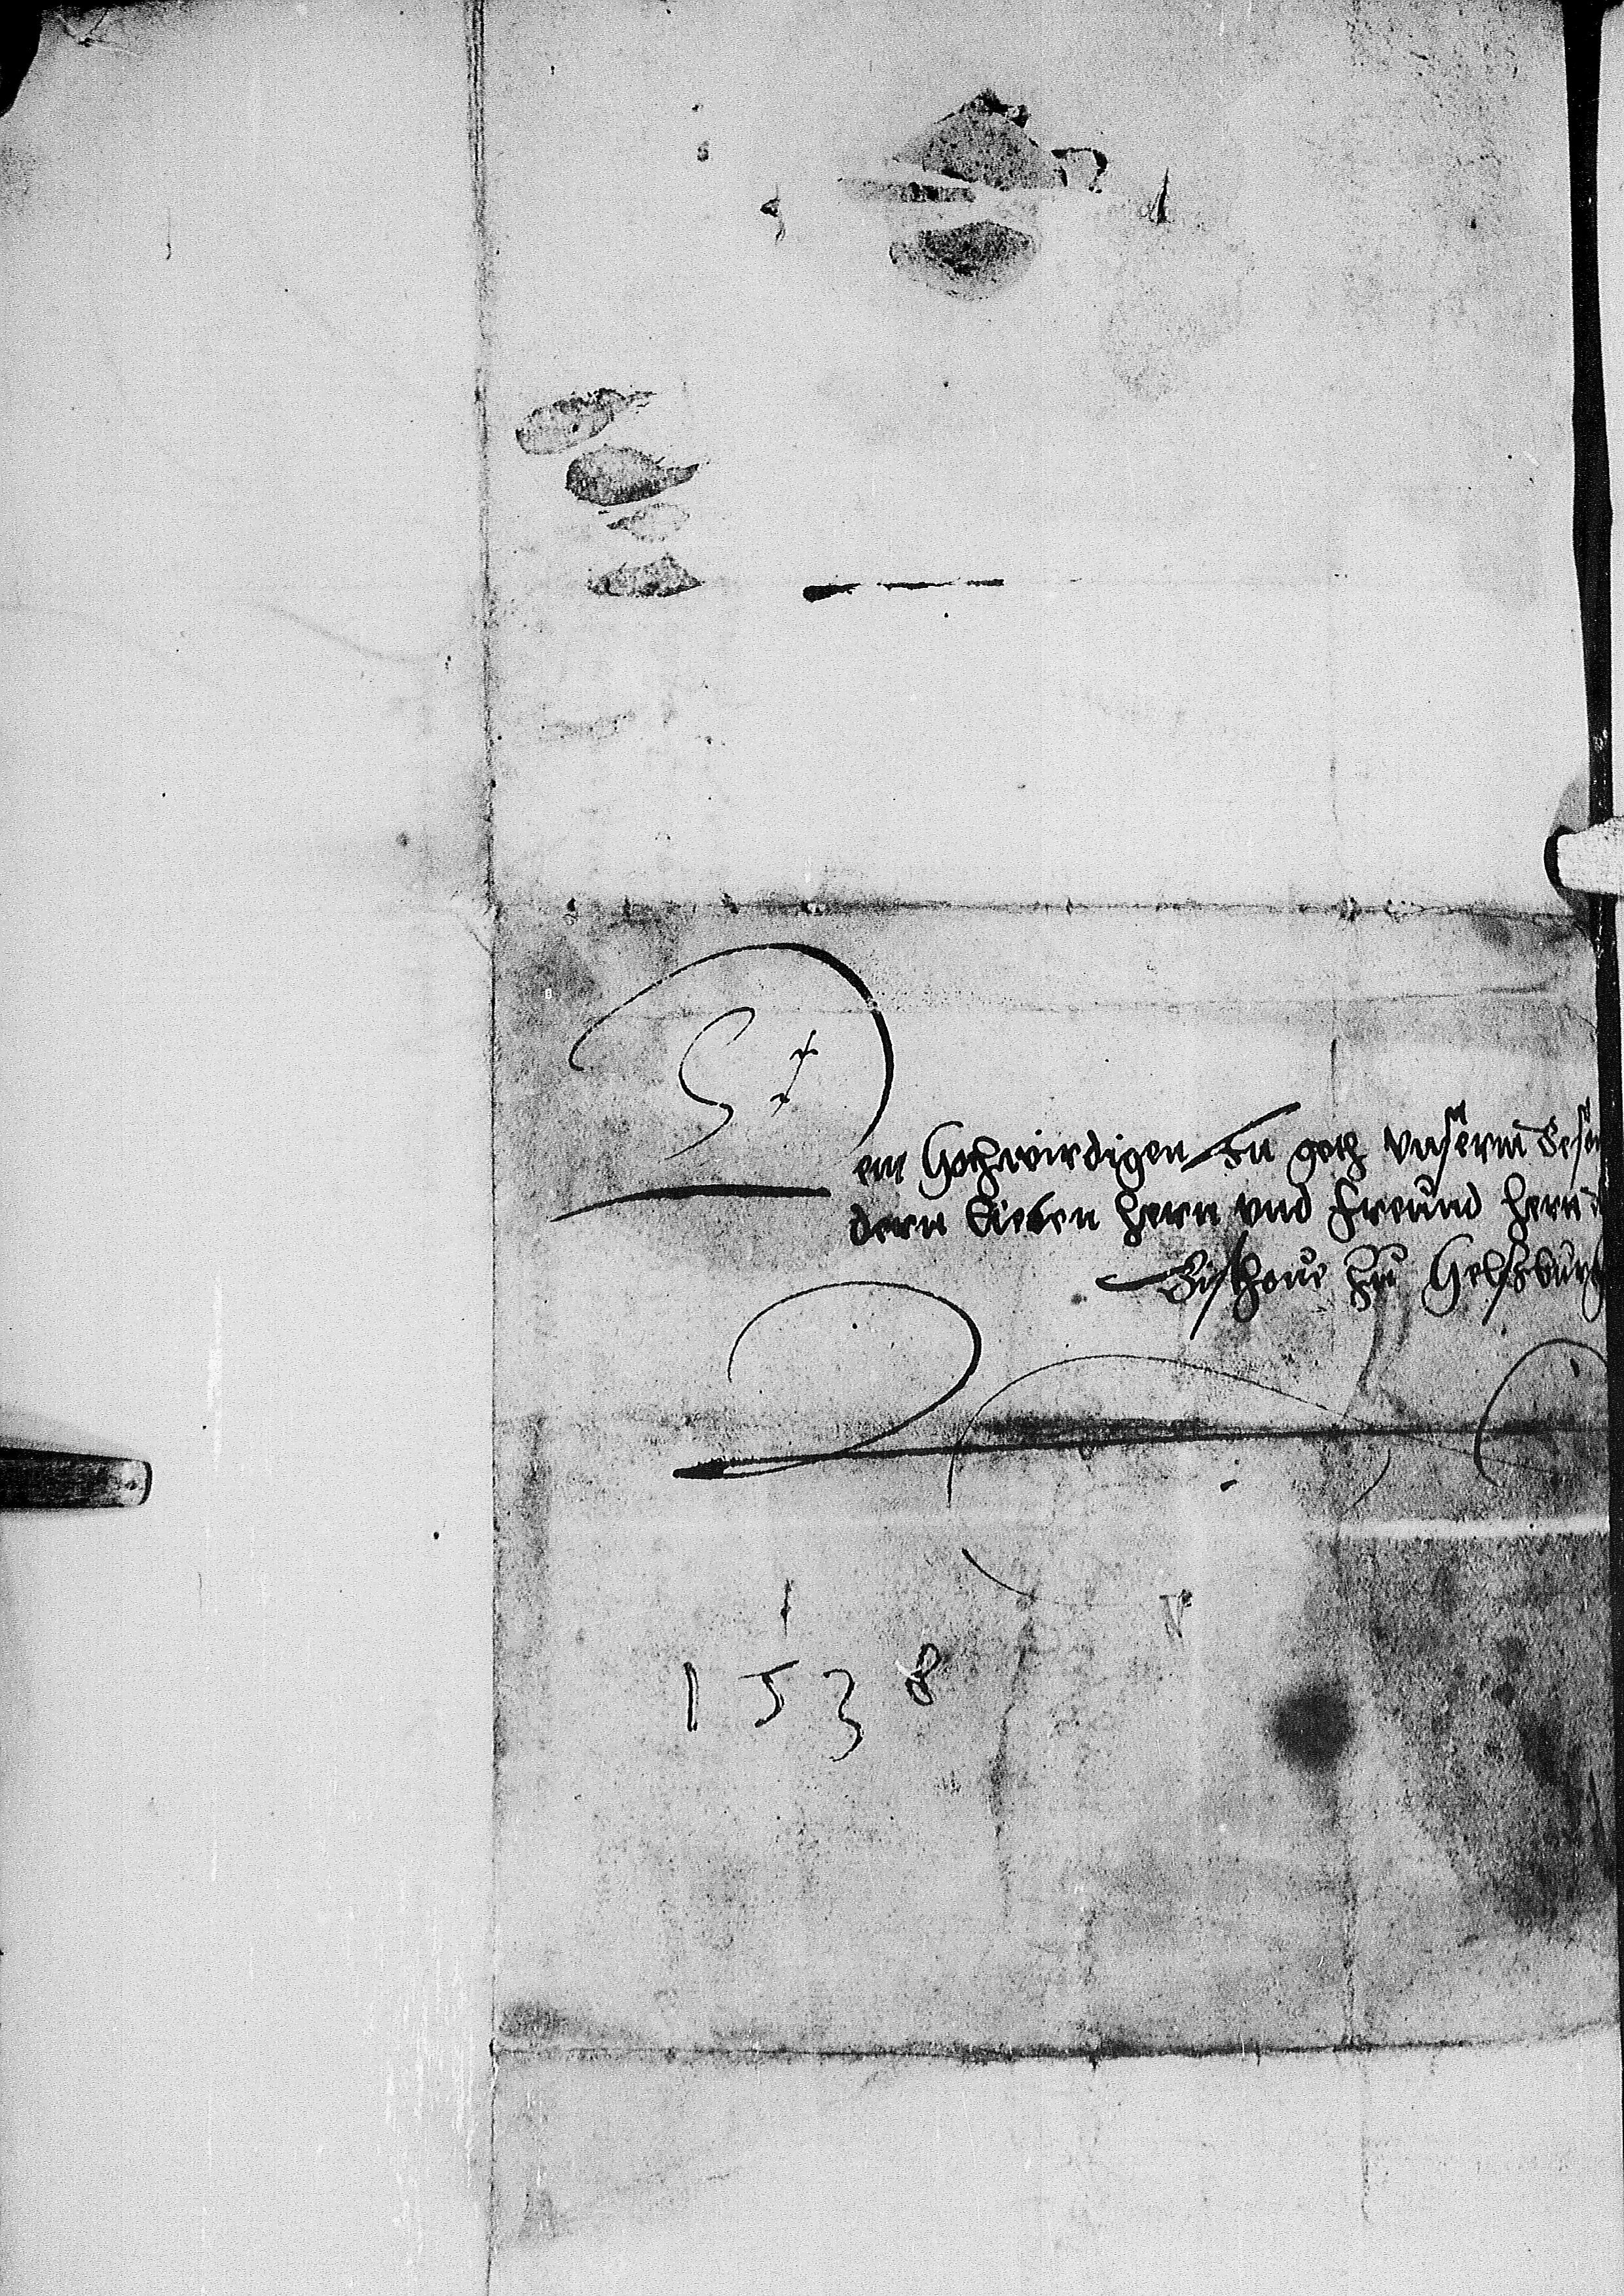 Dem Hochwirdigen In goth vnserm beson
dern Lieben hern vnd Freund hern
Bischoue zu Helssburg
1538